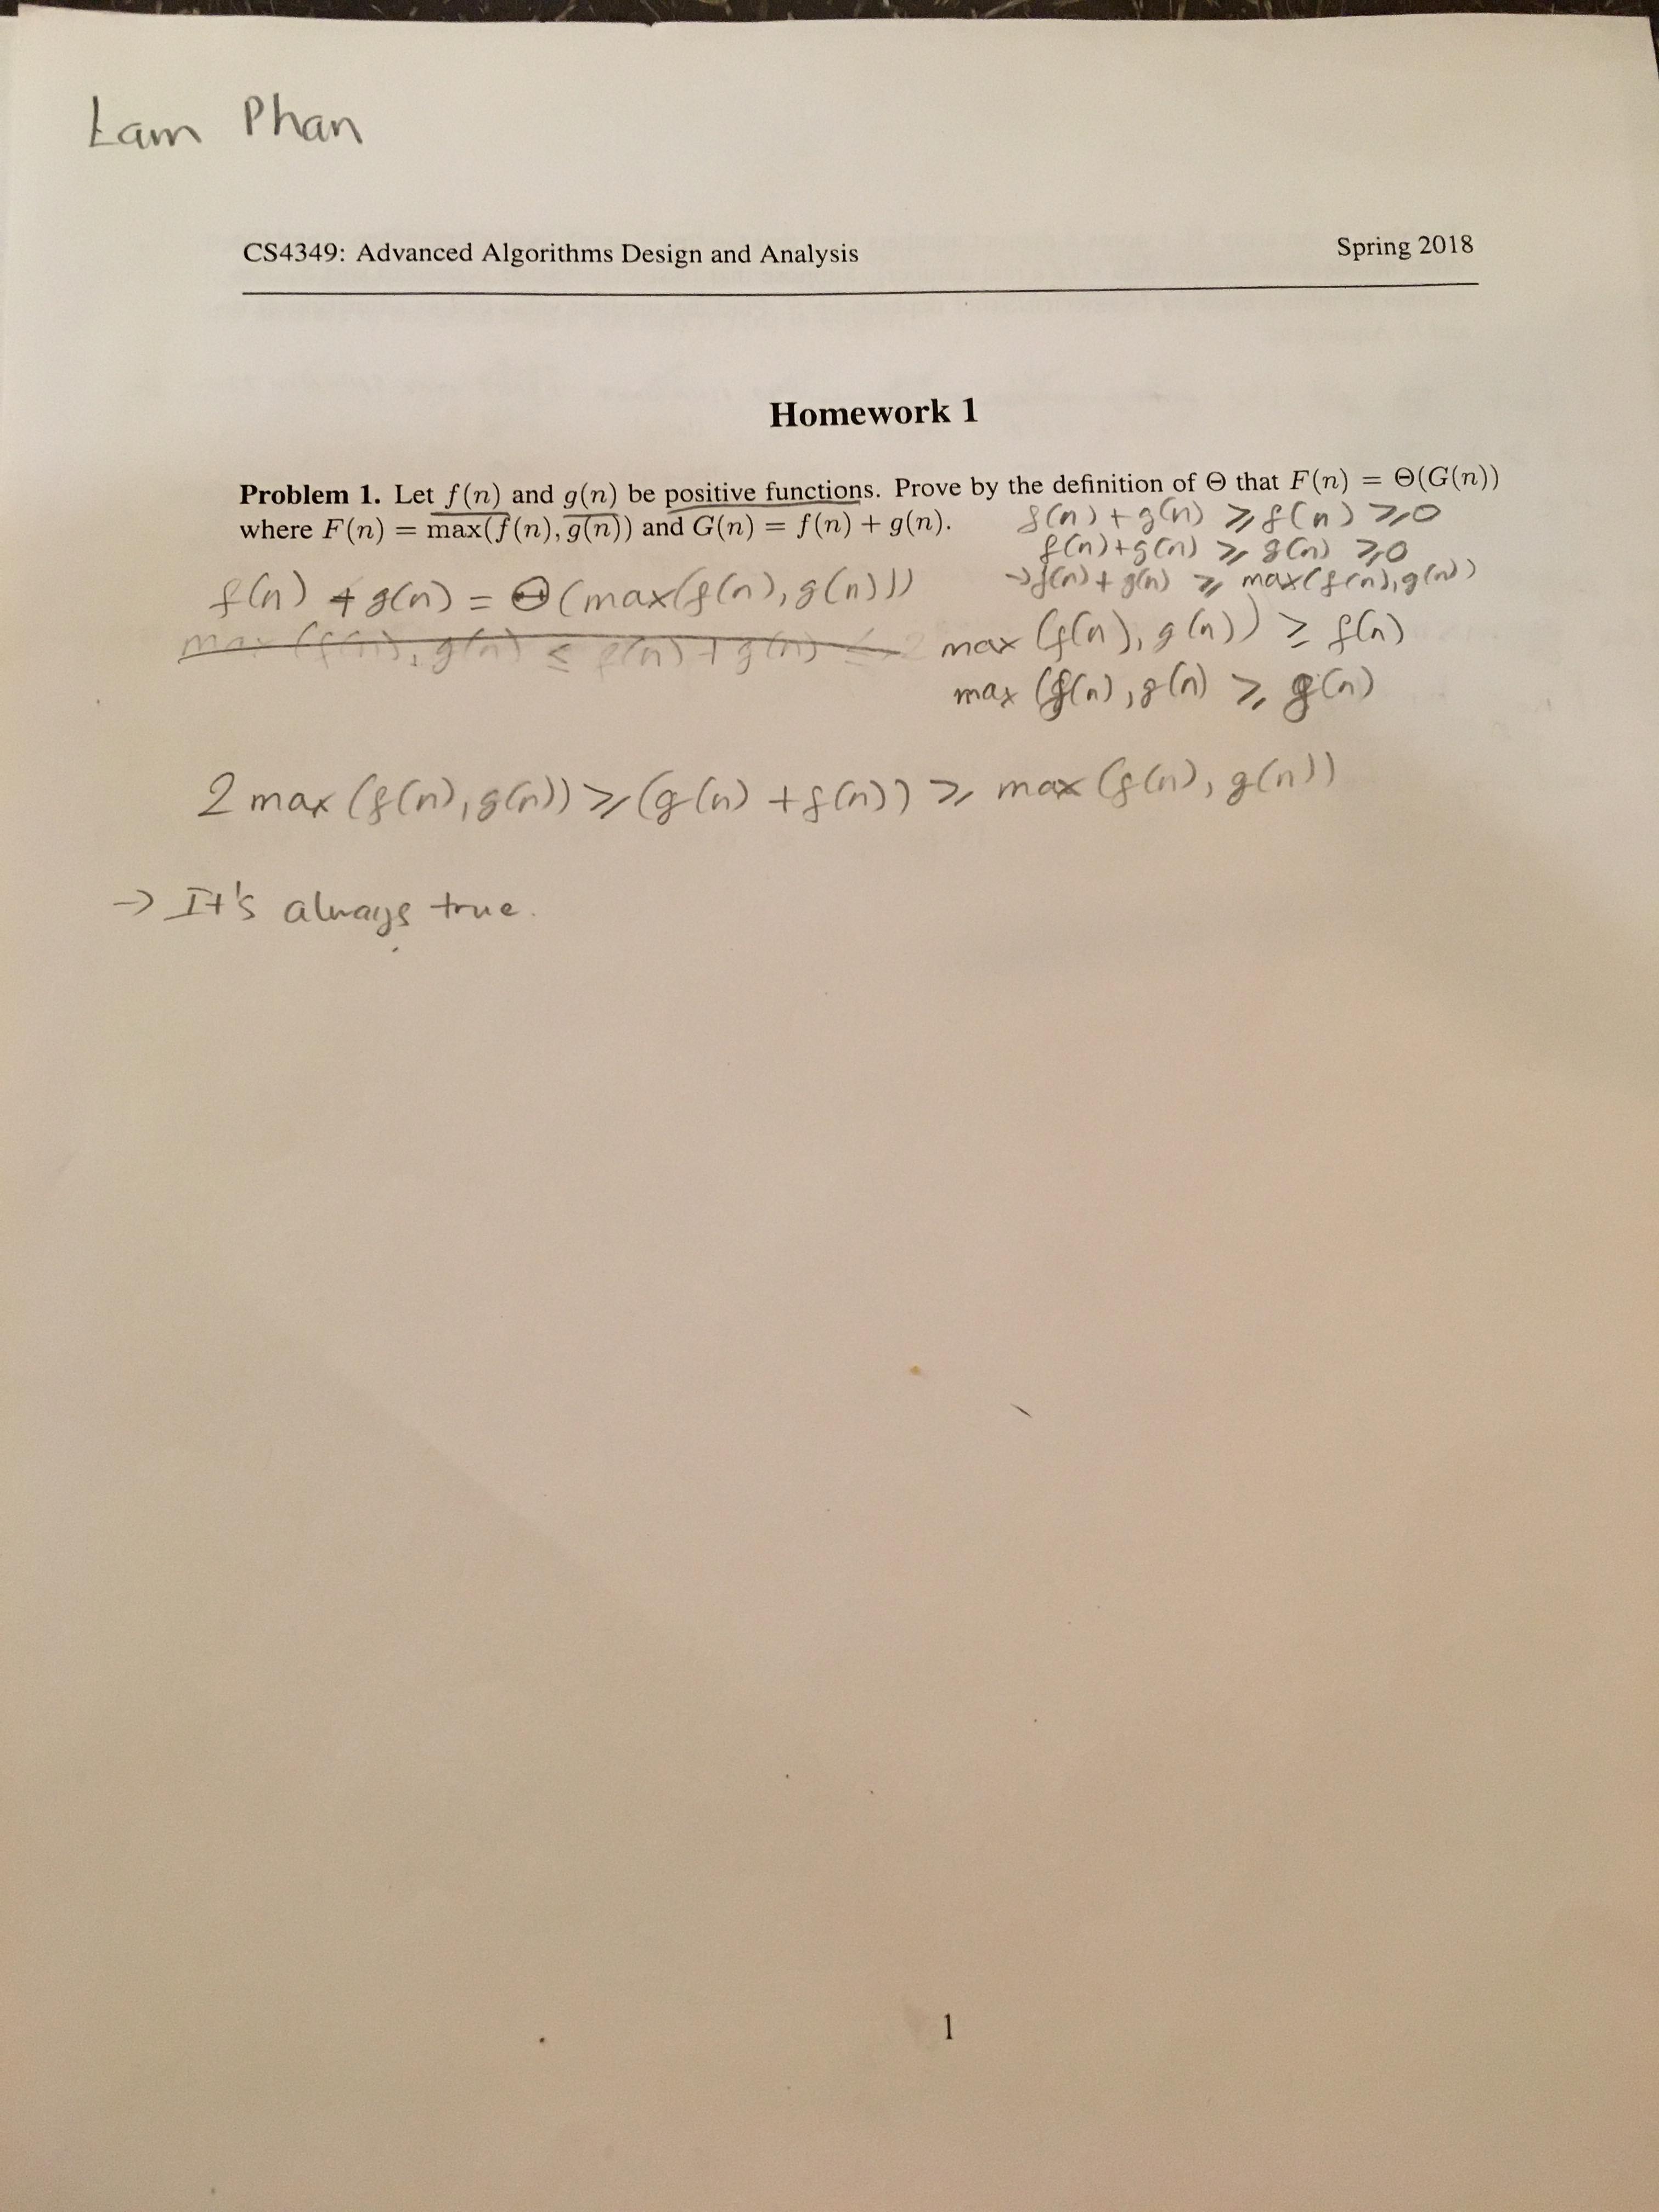 Lam Phan
CS4349: Advanced Algorithms Design and Analysis Spring 2018
Homework 1
Problem 1. Let f(n) and g(n) be positive functions. Prove by the definition of Θ that F(n) = Θ(G(n))
where F(n) = max(f(n), g(n)) and G(n) = f(n) + g(n).
f(n) + g(n) ≥ f(n) ≥ 0
f(n) + g(n) ≥ g(n) ≥ 0
→ f(n) + g(n) ≥ max(f(n), g(n))
f(n) + g(n) = Θ(max(f(n), g(n)))
max (f(n), g(n) ≤ f(n) + g(n) ≤ 2
max (f(n), g(n)) ≥ f(n)
max (f(n), g(n) ≥ g(n)
2 max (f(n), g(n)) ≥ (g(n) + f(n)) ≥ max (f(n), g(n))
→ It's always true.
1